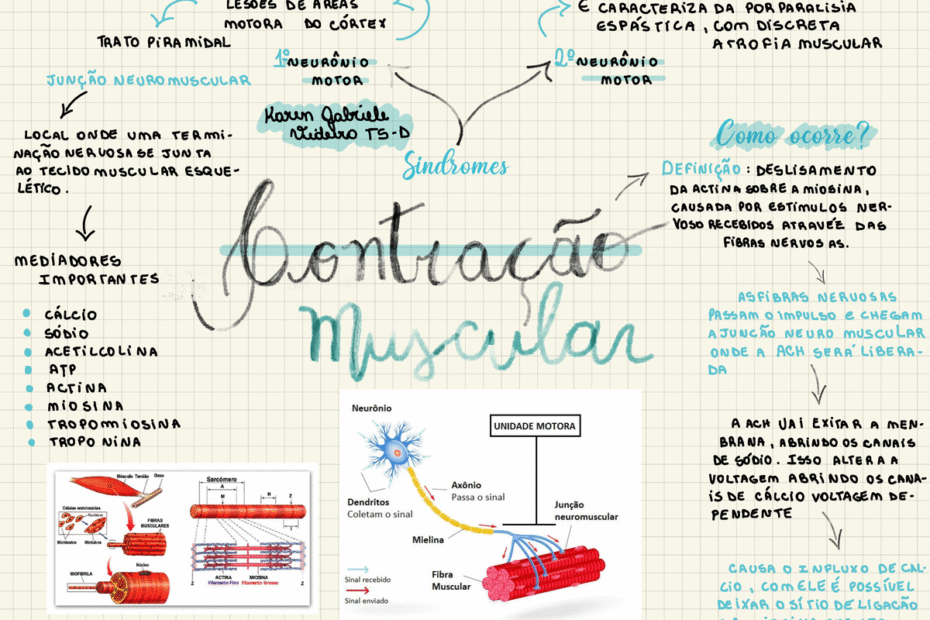 LESÕES DE ÁREAS
MOTORA DO CÓRTEX
TRATO PIRAMIDAL
1º NEURÔNIO
MOTOR
É CARACTERIZA DA POR PARALISIA
ESPÁSTICA, COM DISCRETA
ATROFIA MUSCULAR
2º NEURÔNIO
MOTOR
Síndromes
Karen Gabriele
Videiro T5-D
JUNÇÃO NEUROMUSCULAR
LOCAL ONDE UMA TERMI-
NAÇÃO NERVOSA SE JUNTA
AO TECIDO MUSCULAR ESQUE-
LÉTICO.
MEDIADORES
IMPORTANTES
CÁLCIO
SÓDIO
ACETILCOLINA
ATP
ACTINA
MIOSINA
TROPOMIOSINA
TROPONINA
Contração
Muscular
Como ocorre?
DEFINIÇÃO: DESLISAMENTO
DA ACTINA SOBRE A MIOSINA,
CAUSADA POR ESTÍMULOS NER-
VOSO RECEBIDOS ATRAVÉE DAS
FIBRAS NERVOSAS.
AS FIBRAS NERVOSAS
PASSAM O IMPULSO E CHEGAM
A JUNÇÃO NEURO MUSCULAR
ONDE A ACH SERÁ LIBERA-
DA
A ACH VAI EXITAR A MEN-
BRANA, ABRINDO OS CANAIS
DE SÓDIO. ISSO ALTERA A
VOLTAGEM ABRINDO OS CANA-
IS DE CÁLCIO VOLTAGEM DE-
PENDENTE
CAUSA O INFLUXO DE CÁL-
CIO, COM ELE É POSSÍVEL
DEIXAR O SÍTIO DE LIGAÇÃO
Músculo Tendão Osso
FIBRAS
MUSCULARES
Núcleo
MIOFIBRILA
Sarcômero
A
H
M
Z
ACTINA
Filamento Fino
MIOSINA
Filamento Grosso
Neurônio
UNIDADE MOTORA
Dendritos
Coletam o sinal
Axônio
Passa o sinal
Mielina
Junção
neuromuscular
Fibra
Muscular
Sinal recebido
Sinal enviado